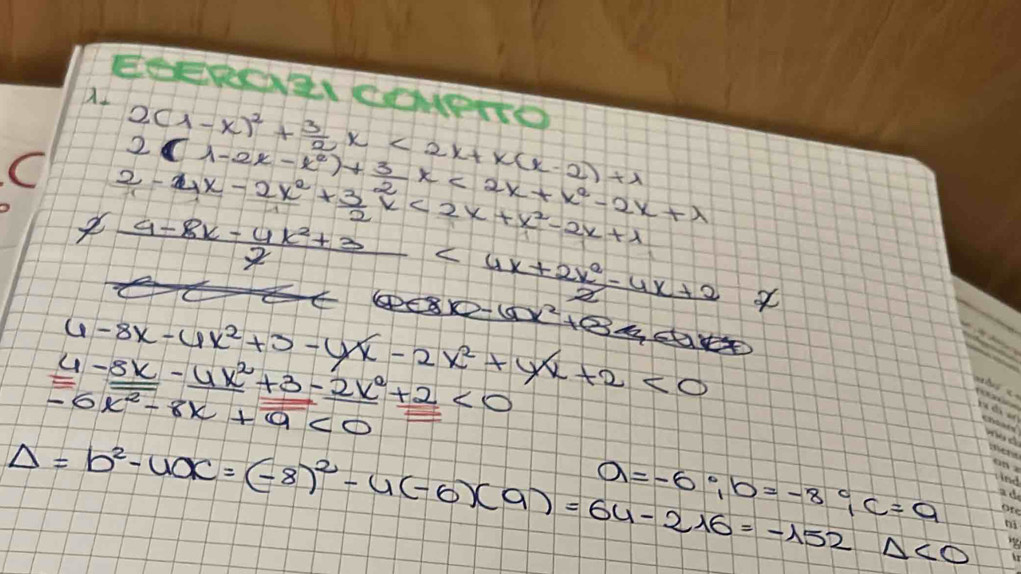 ESERCIZI COMPITO
1.
2(1-x)² + 3/2 x < 2x + x(x-2) + 1
2(1-2x-x²) + 3/2 x < 2x + x² - 2x + 1
2 - 4x - 2x² + 3/2 x < 2x + x² - 2x + 1
2 (4-8x-4x²+3)/2 < (4x+2x²-4x+2)/2 2
4-8x-4x²+3-4x-2x²+4x+2<0
4-8x-4x²+3-2x²+2<0
-6x²-8x+9<0
a=-6; b=-8; c=9
Δ=b²-4ac=(-8)²-4(-6)(9)=64-216=-152 Δ<0